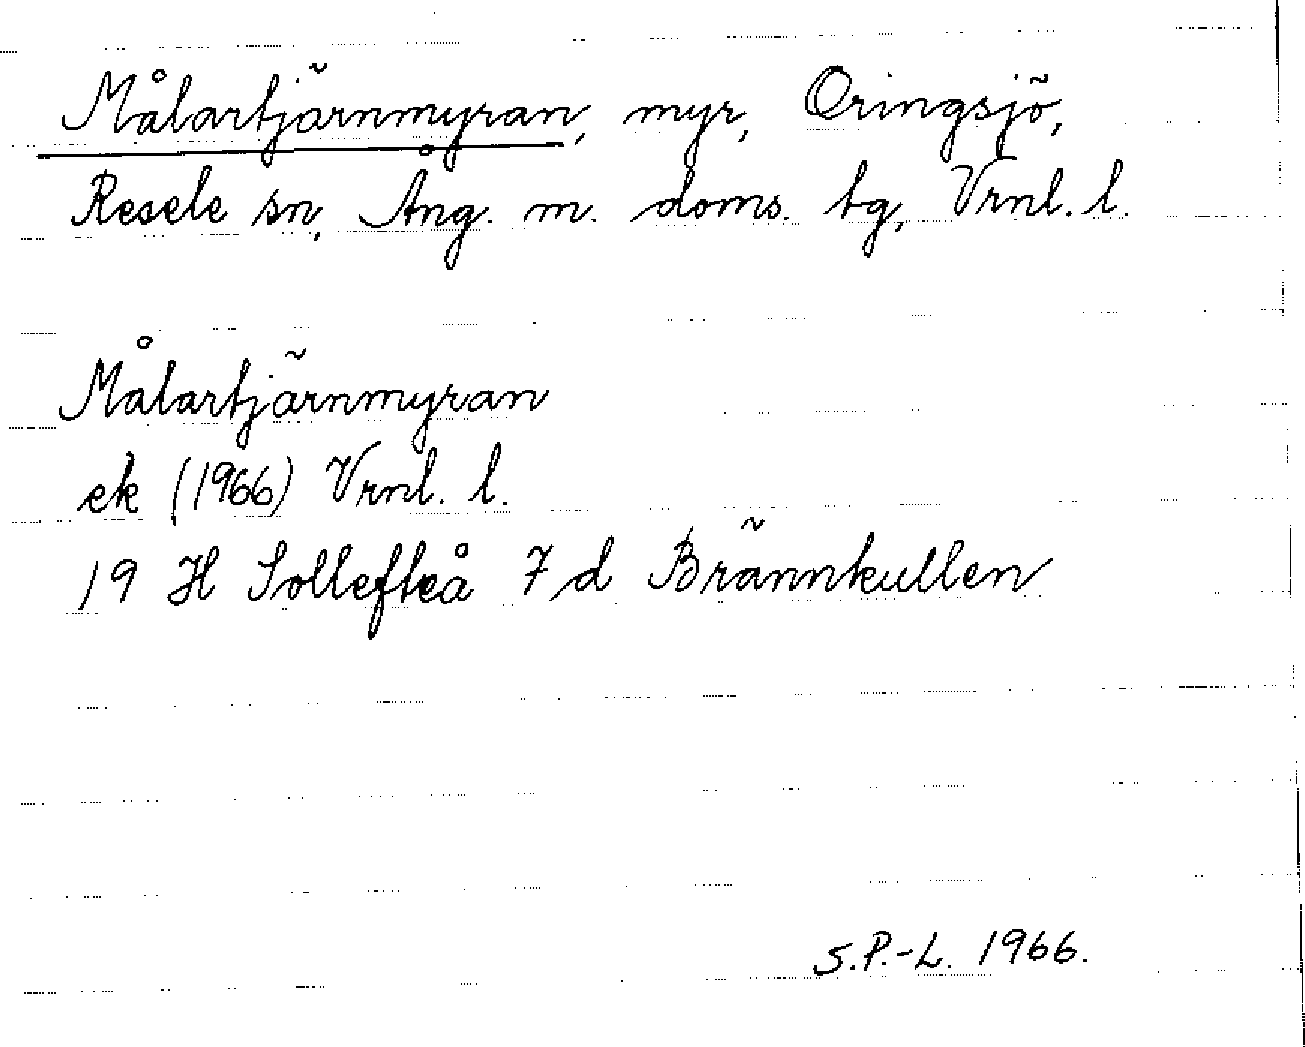 Målartjärnmyran, myr, Oringsjö,
Resele sn, Ång. m. doms. tg, Vrnl. l.
Målartjärnmyran
ek (1966) Vrnl. l.
19 H Sollefteå 7 d Brännkullen
S.P.-L. 1966.